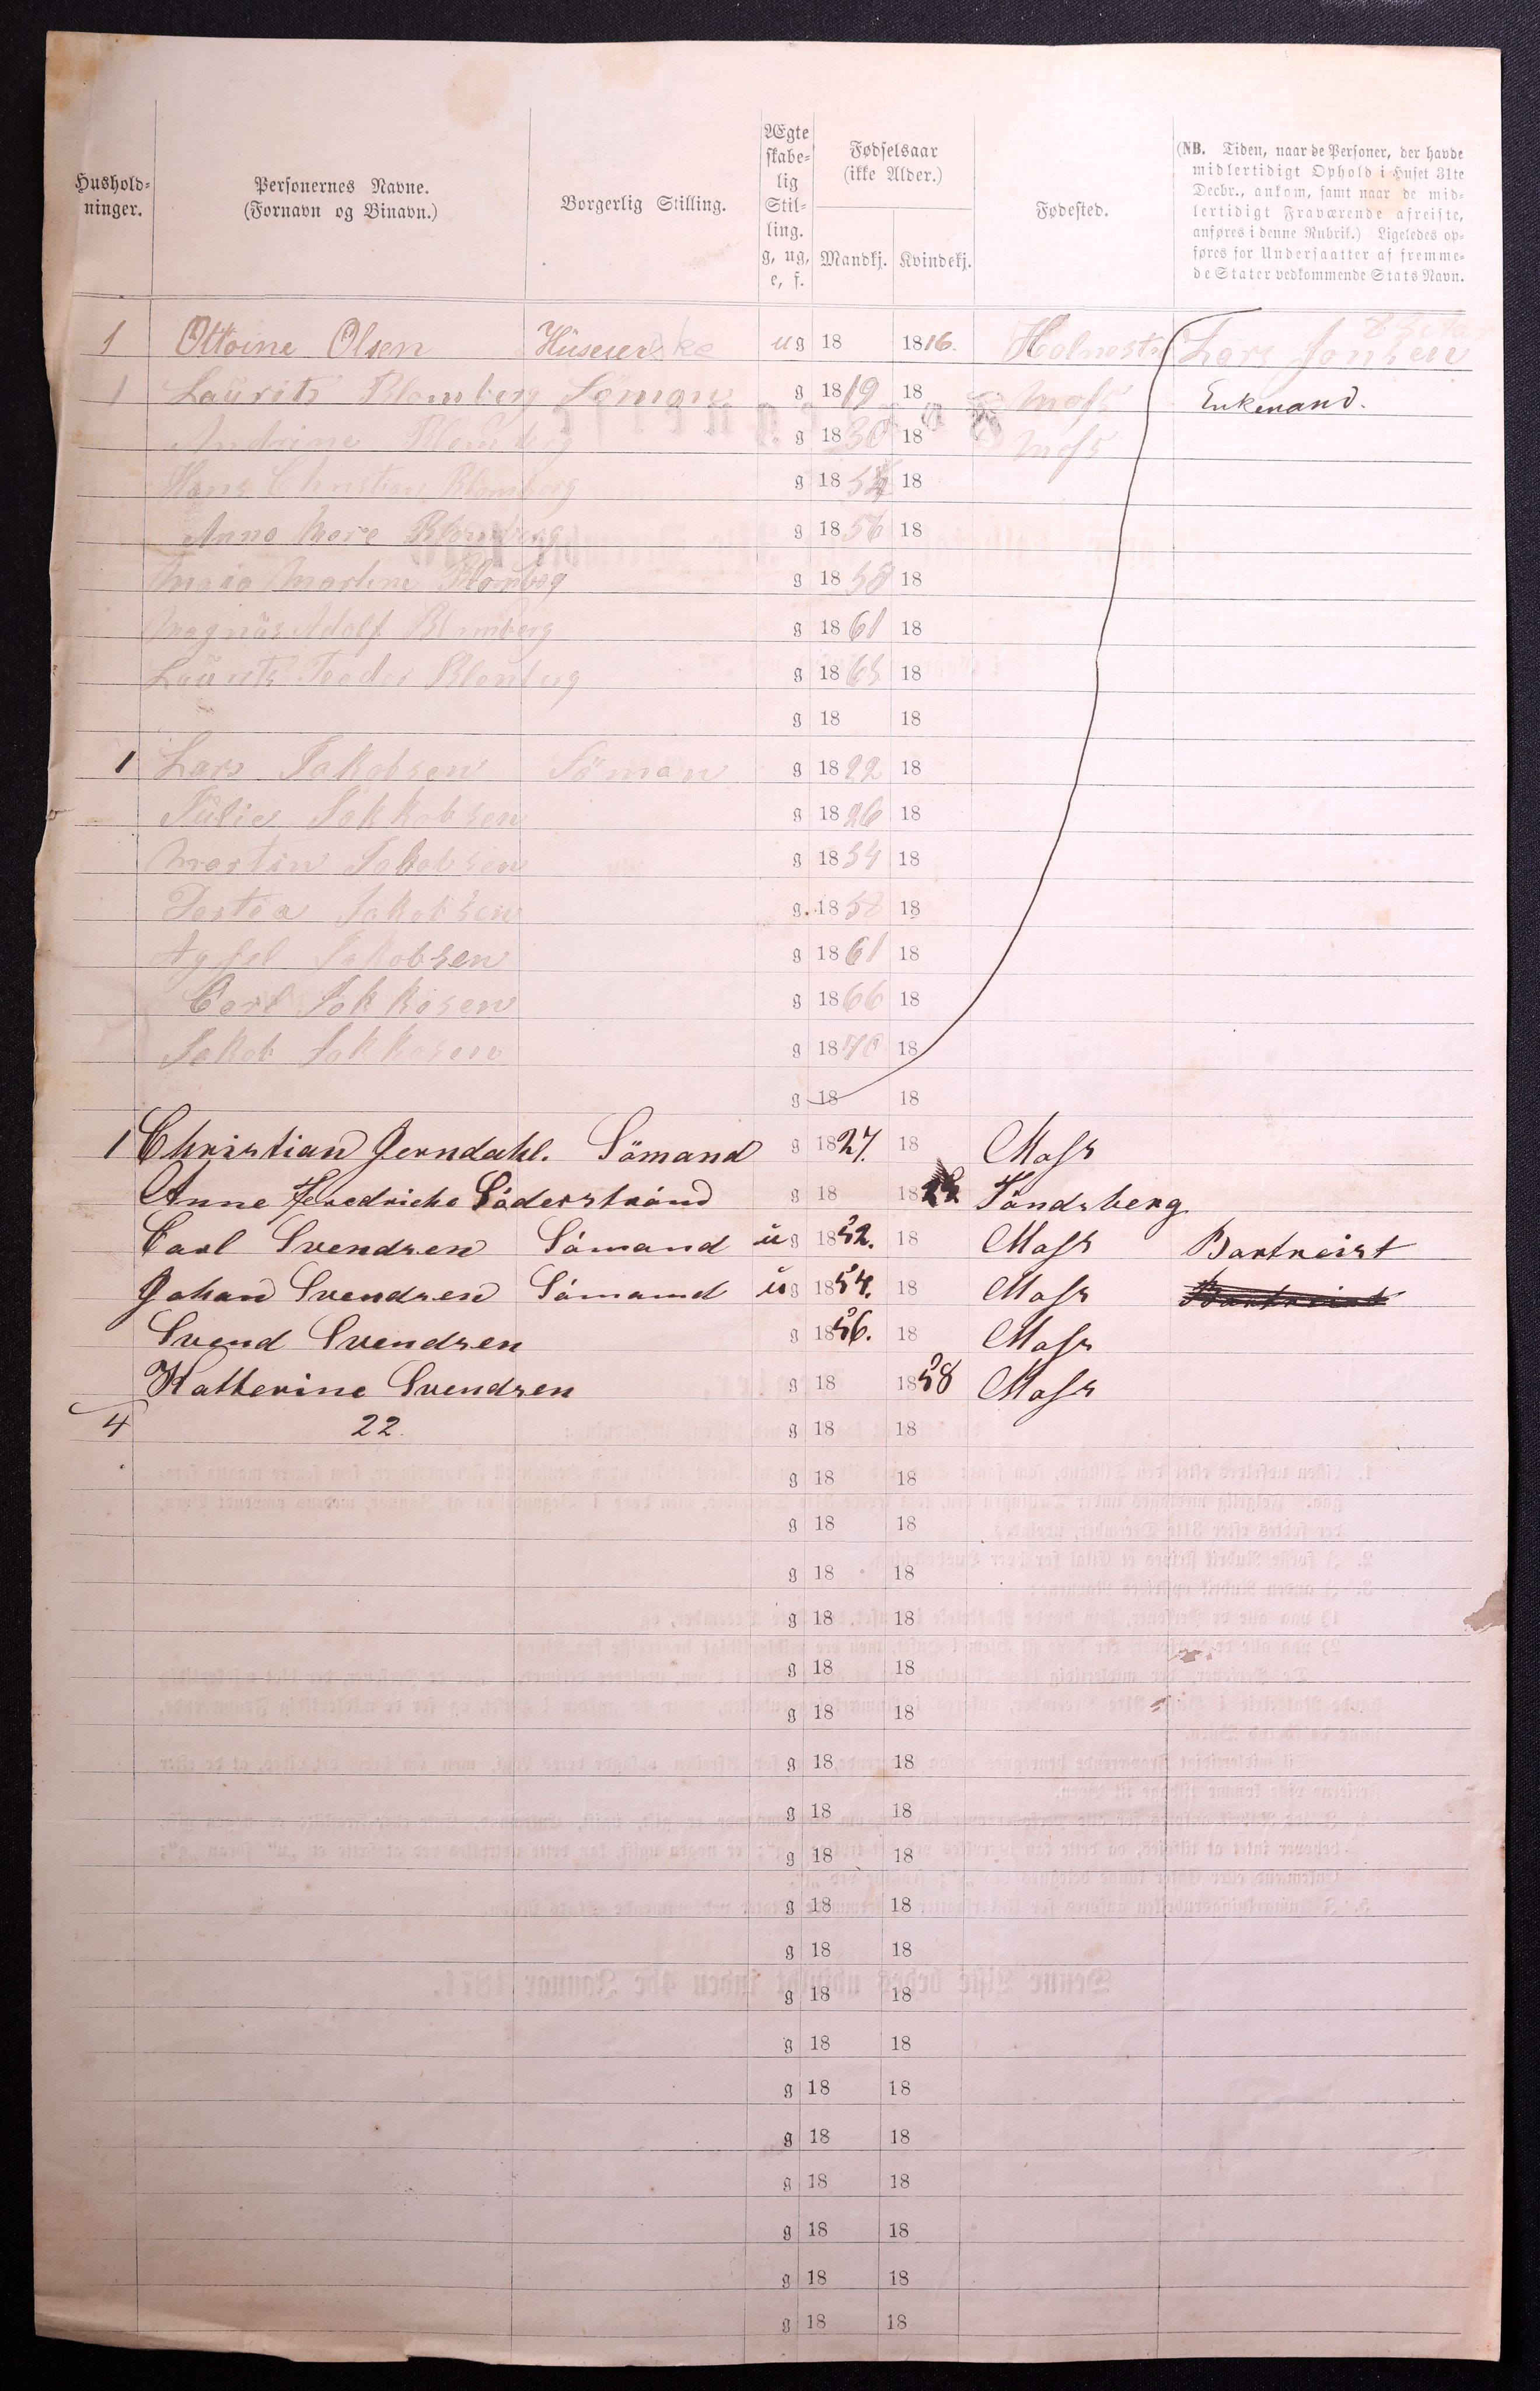 Hushold-
ninger.
Personernes Navne.
(Fornavn og Binavn.)
Borgerlig Stilling.
Ægte
skabe-
lig
Stil-
ling.
g, ug,
e, f.
Fødselsaar
(ikke Alder.)
Mandkj. Kvindekj.
Fødested.
(NB. Tiden, naar de Personer, der havde
midlertidigt Ophold i Huset 31te
Decbr., ankom, samt naar de mid-
lertidigt Fraværende afreiste,
anføres i denne Rubrik.) Ligeledes op-
føres for Undersaatter af fremme-
de Stater vedkommende Stats Navn.
1 Ottoine Olsen ug 18 1816. Lars Jonsen
1 Laurits Blomberg Söman g 1819 18 Moss Enkemand.
Andrine Blomberg g 1830 18 Moss
Hans Christian Blomberg g 18 18
Anna Mare Blomberg g 1856 18
Maria Martine Blomberg g 1858 18
Magnus Adolf Blomberg g 1861 18
Laurits Teodor Blomberg g 1865 18
g 18 18
1 Lars Jakobsen Söman g 1822 18
Julie Jakkobsen g 1826 18
Martin Jakobsen g 1854 18
Jakobsen g 1858 18
Jakobsen g 1861 18
Carl Jakkosen g 1866 18
Jakob Jakkosen g 1870 18
g 18 18
1 Christian Jerndahl. Sömand g 1827. 18 Moss
Anne Fredricke Söderstrånd g 18 18 Töndsberg
Carl Svendsen Sömand ug 1852. 18 Moss Bortreist
Johan Svendsen Sömand ug 1854. 18 Moss Bortreist
Svend Svendsen g 1856. 18 Moss
Katherine Svendsen g 18 1858 Moss
4 22. g 18 18
g 18 18
g 18 18
g 18 18
g 18 18
g 18 18
g 18 18
g 18 18
g 18 18
g 18 18
g 18 18
g 18 18
g 18 18
g 18 18
g 18 18
g 18 18
g 18 18
g 18 18
g 18 18
g 18 18